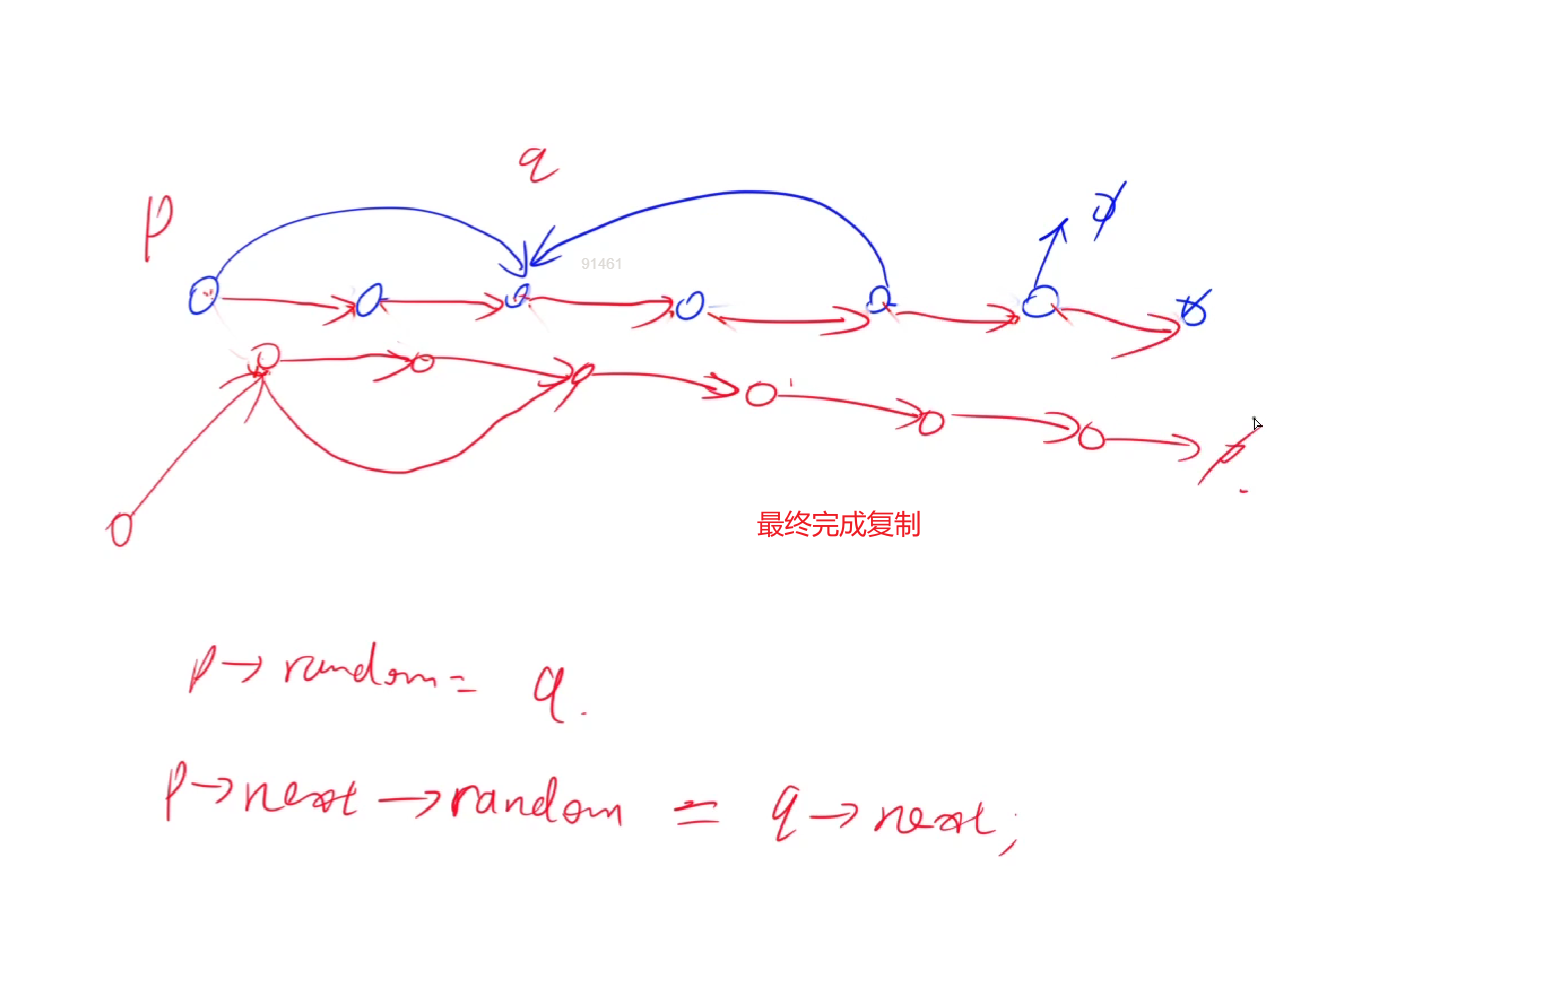 q
p
φ
91461
φ
φ.
最终完成复制
p→random = q.
p→next→random = q→next;